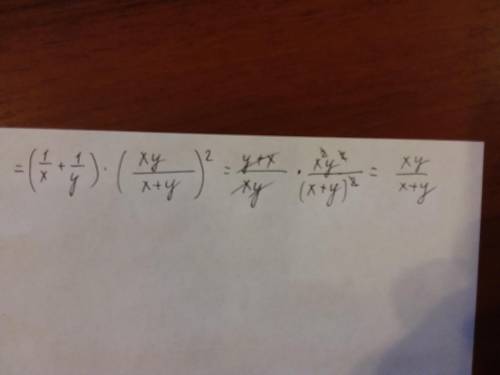 = (1/x + 1/y) · (xy/(x+y))² = (y+x)/(xy) · (x²y²)/((x+y)²) = xy/(x+y)